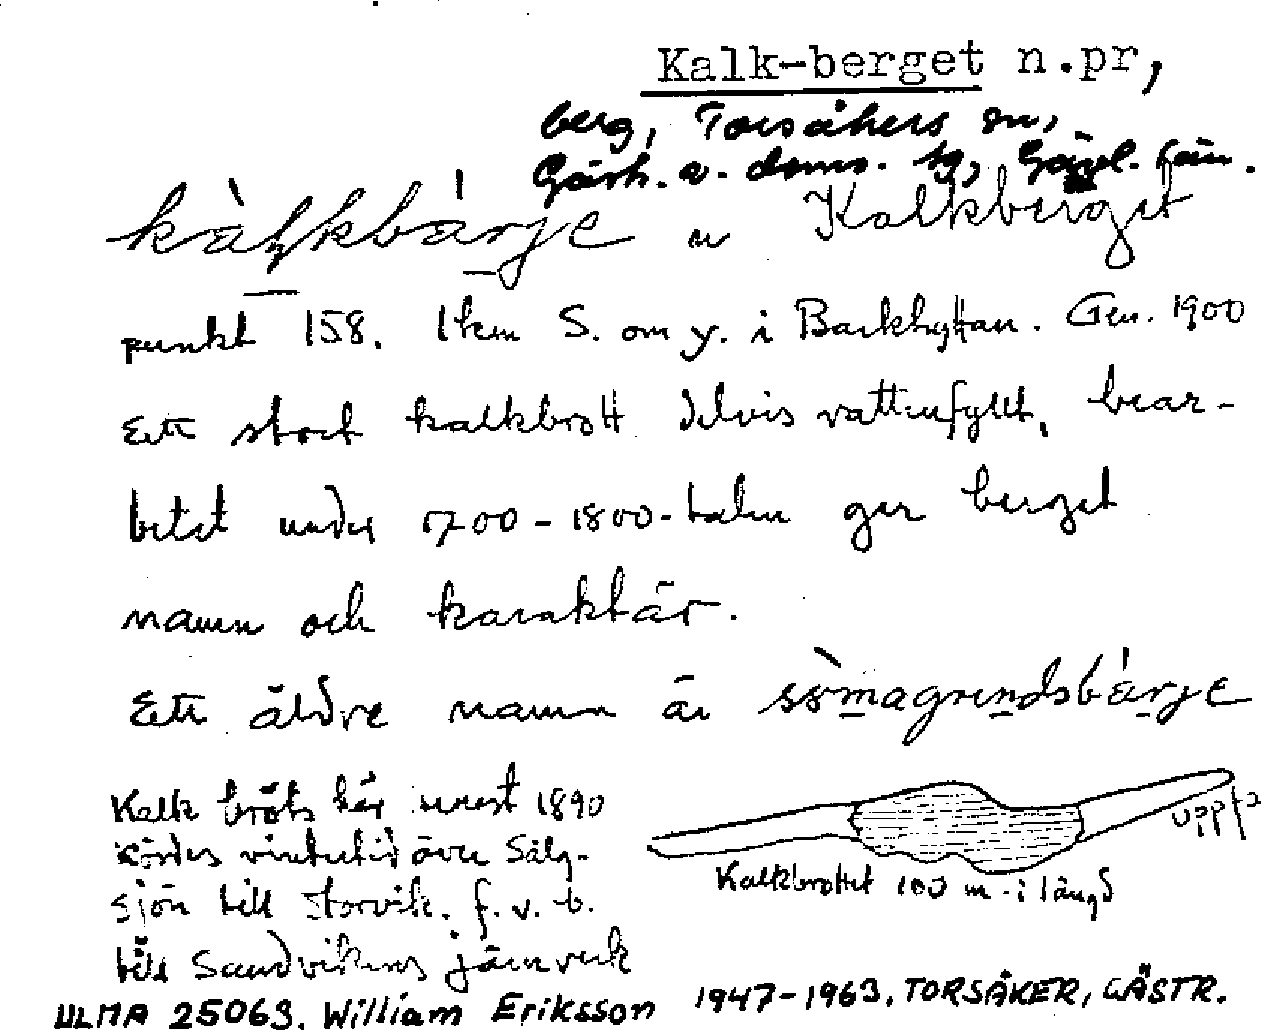 Kalk-berget n.pr,
berg, Torsåkers sn,
Gästr. ö. doms. sg, Gävl. län.
kàḷkbárje n Kalkberget
punkt 158. 1 km S. om y. i Barkhyttan. Gen. 1900
Ett stort kalkbrott delvis vattenfyllt, bear-
betet under 1700-1800-talen ger berget
namn och karaktär.
Ett äldre namn är
Kalk bröts här senast 1890
kördes vintertid över Sälg-
sjön till Storvik. f. v. b.
till Sandvikens järnverk
Kalkbrottet 100 m i längd
ULMA 25063. William Eriksson 1947-1963. TORSÅKER, GÄSTR.